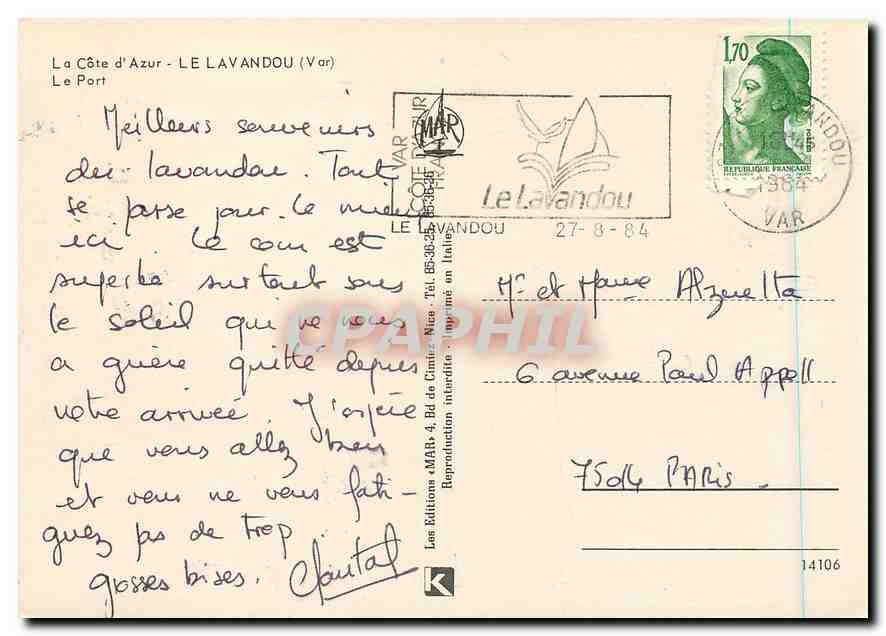 La Côte d'Azur - LE LAVANDOU (Var)
Le Port
Meilleurs souvenirs
du lavandou. Tout
se passe pour le mieux
ici. Le coin est
superbe surtout sous
le soleil qui ne nous
a guère quitté depuis
notre arrivée. J'espère
que vous allez bien
et vous ne vous fati-
guez pas de trop
grosses bises. Chantal
VAR
CÔTE D'AZUR
FRANCE
MAR
Le Lavandou
LE LAVANDOU 27-8-84
1,70
REPUBLIQUE FRANÇAISE
LAVANDOU
1984
VAR
Les Editions «MAR» 4, Bd de Cimiez - Nice - Tél. 85-36-25
Reproduction interdite - Imprimé en Italie
K
CPAPHIL
Mr et Mme Alzuelta
6 avenue Paul Appell
75014 PARIS
14106